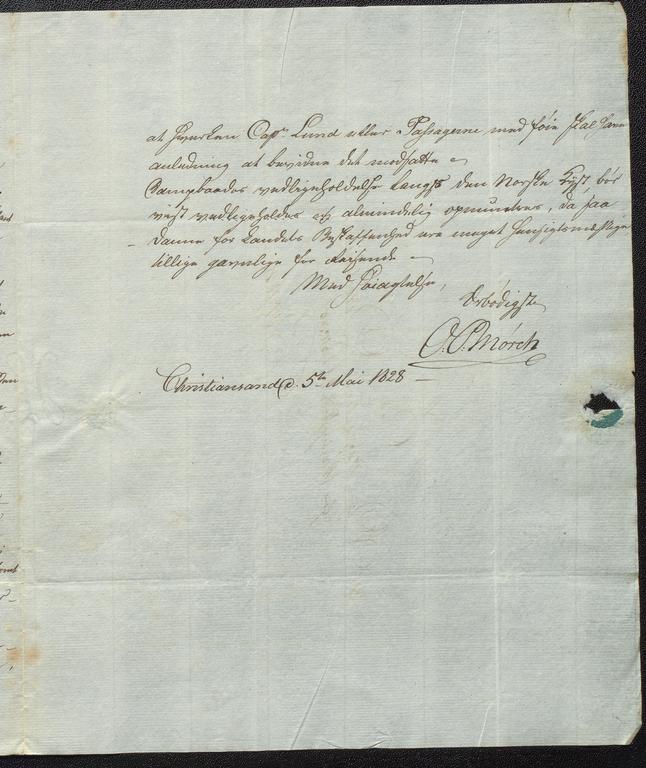 at hverken Capt Lund eller Passagerne med føie skal have
anledning at bevidne det modsatte
Dampbaades vedligeholdelse langst den Norske Kyst bør
vist vedligeholdes og almindelig opmuntres, da saa
danne for Landets Beskaffenhed ere meget hensigtsmæssige
tillige gavnlige for Reisende
Med Høiagtelse,
Erbødigst
O. P. Mørch
Christiansand d. 5te Mai 1828